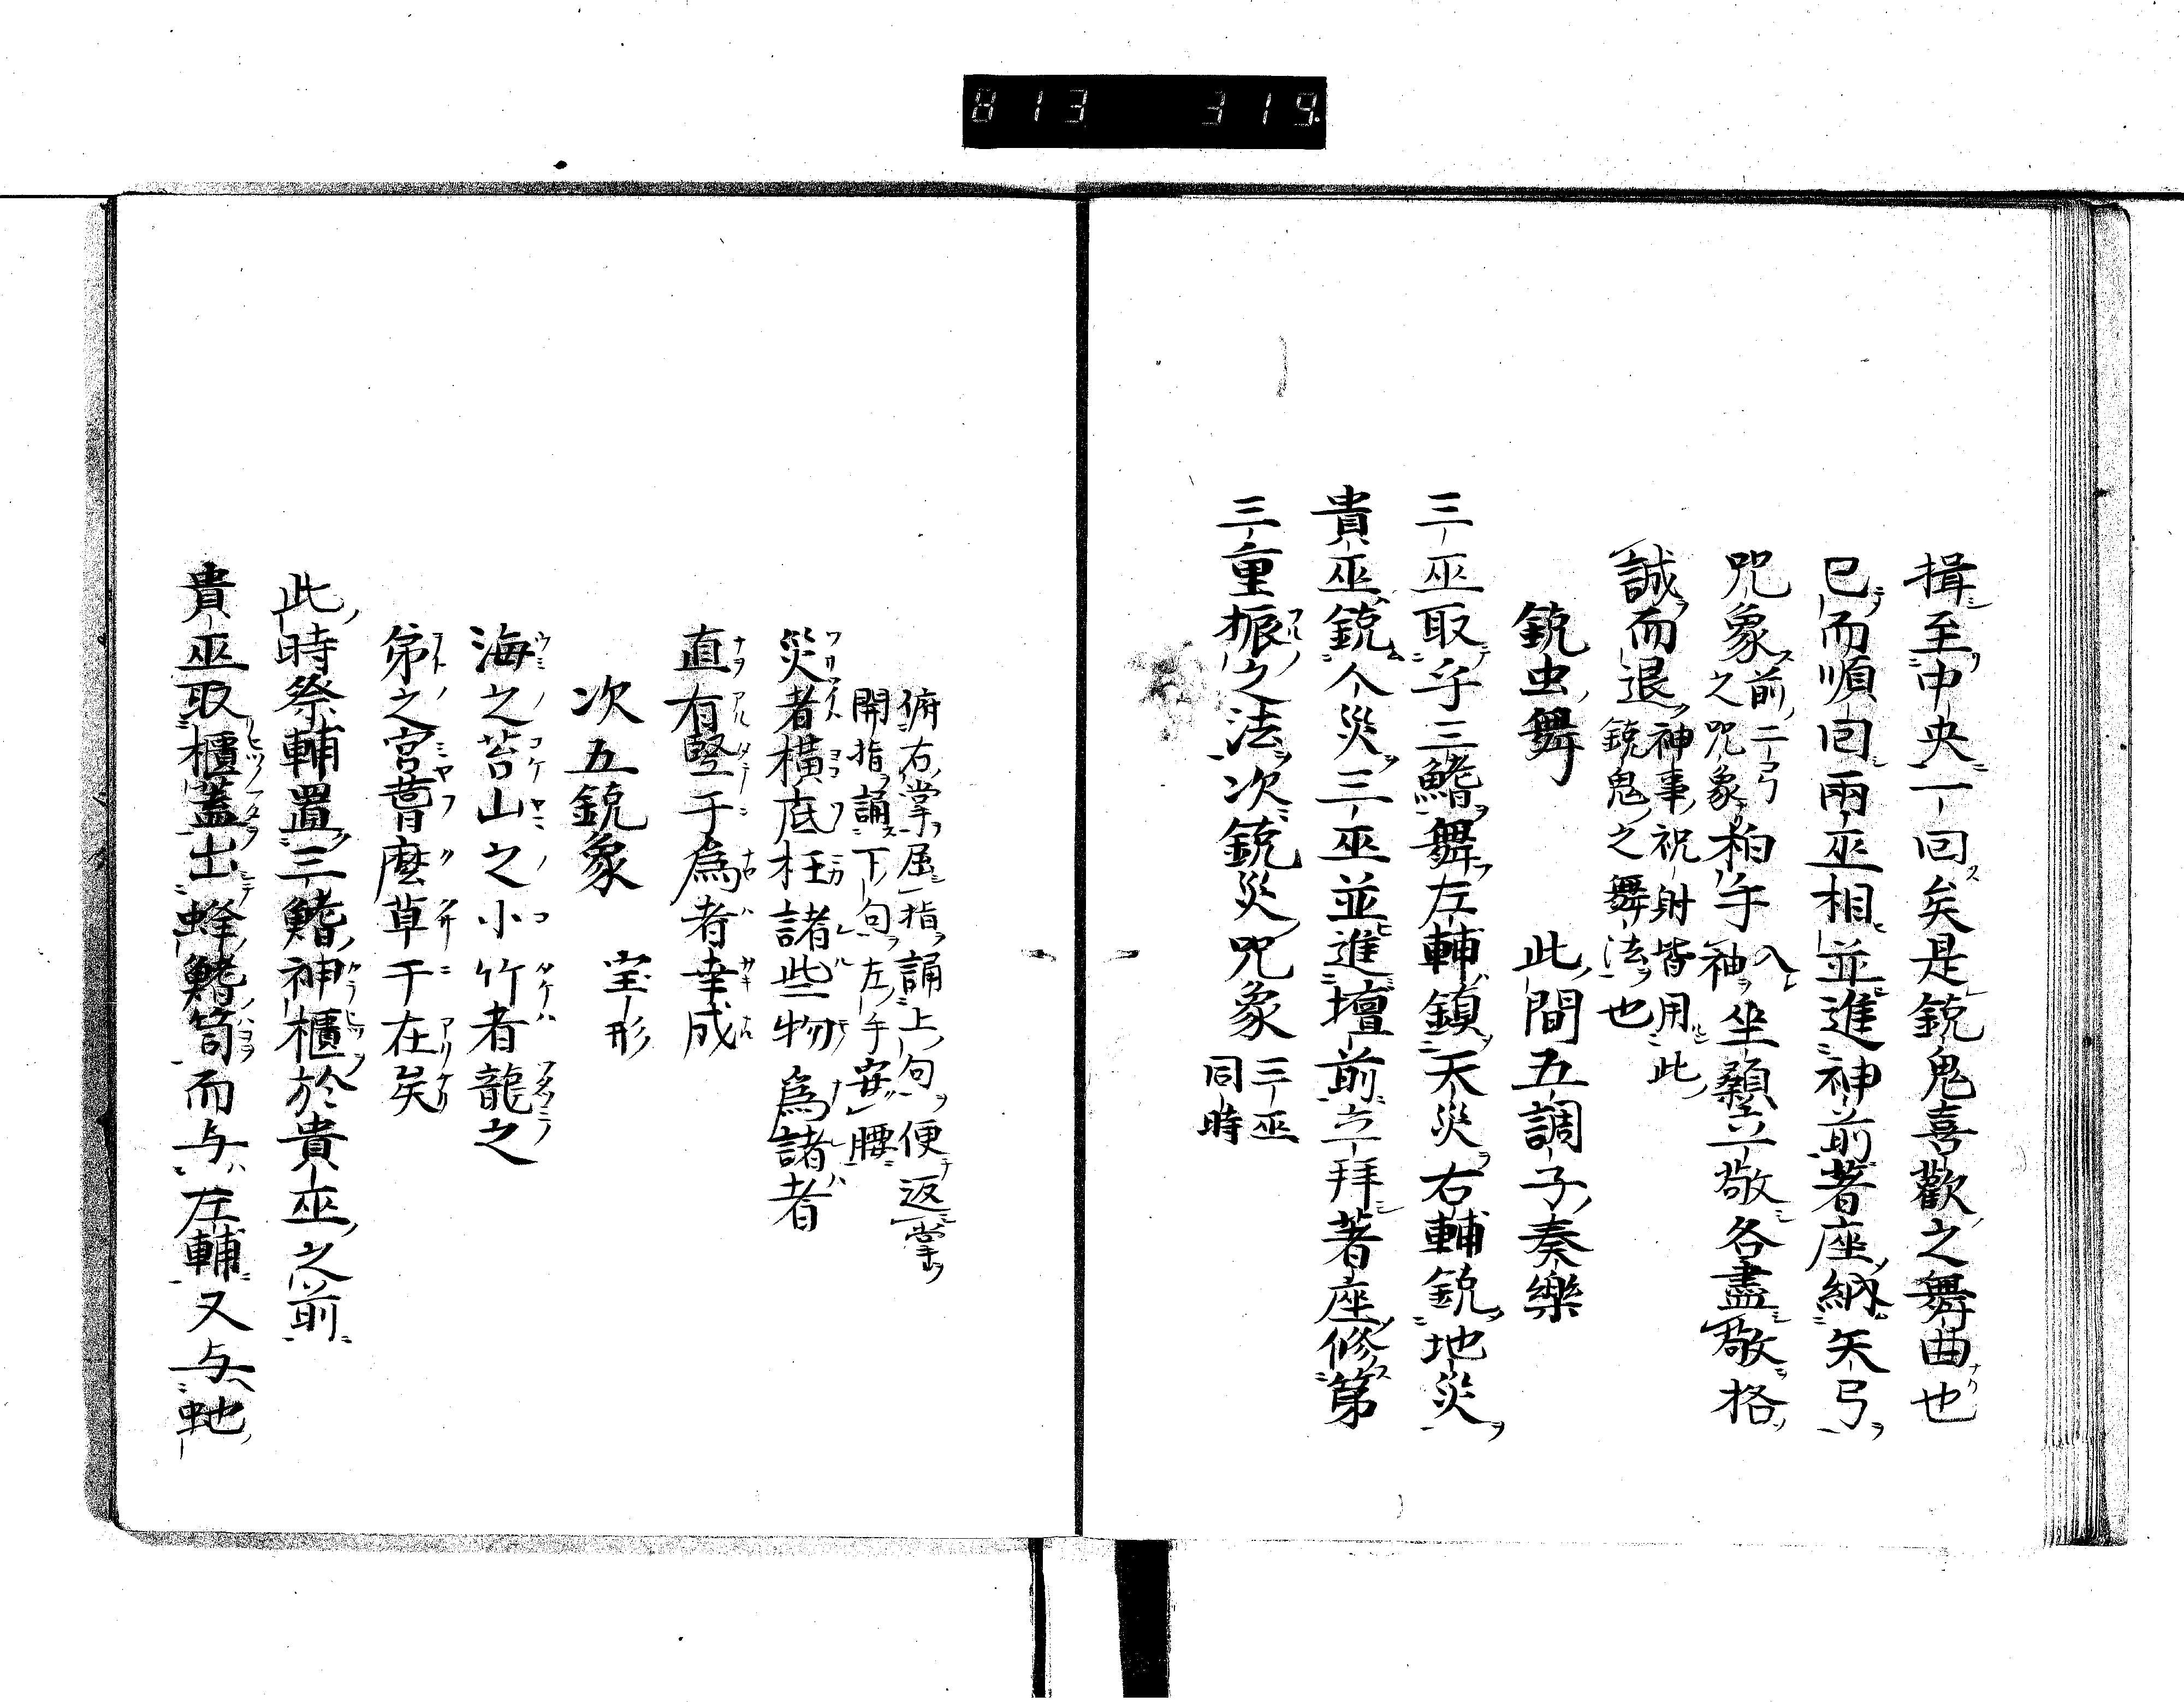 813 319.
揖至中央一回矣是鋭鬼喜歡之舞曲也
已而順回兩巫相並進神前著座納矢弓
咒象前二弓之咒象拍手入袖坐顙立敬各盡敬格
誠而退神事祝射皆用此鋭鬼之舞法也
鋭虫舞 此間五調子奏樂
三巫取乎三鰭舞左輔鎮天災右輔鋭地災
貴巫鋭人災三巫並進壇前立拜著座修第
三重振之法次鋭災咒象三巫同時
俯右掌屈一指誦上句便返掌
開指誦下句左手安腰
災者橫底枉諸些物為諸者
直有竪于為者幸成
次五鋭象 宝形
海之苔山之小竹者龍之
弟之宮葺麼草于在矣
此時祭輔置三鰭神櫃於貴巫之前
貴巫取櫃蓋出蜂鰭笥而与左輔又与虵